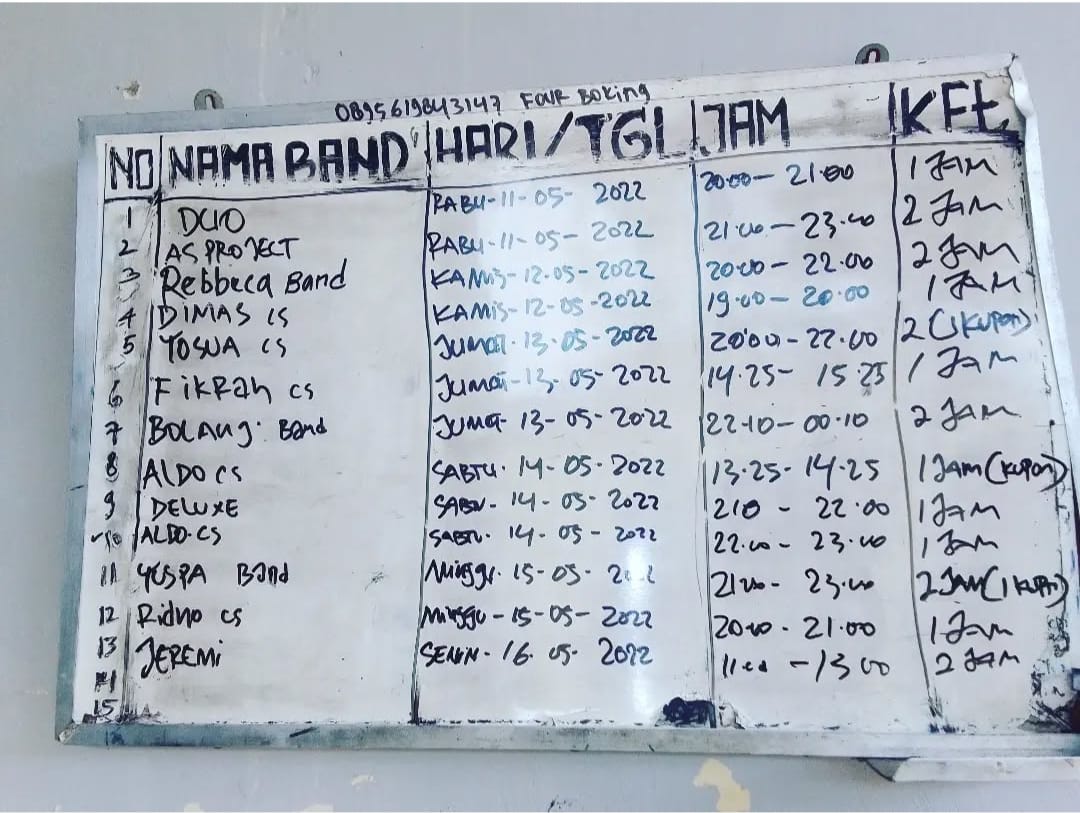 089561984 3147 Four Boking
NO NAMA BAND HARI/TGL JAM KET
1 DUO RABU-11-05-2022 20:00-21:00 1 JAM
2 AS PROJECT RABU-11-05-2022 21:00-23:00 2 JAM
3 Rebbeca Band KAMIS-12-05-2022 20:00-22:00 2 JAM
4 DIMAS CS KAMIS-12-05-2022 19:00-20:00 1 JAM
5 YOSUA CS JUMAT-13-05-2022 20:00-22:00 2 (1 KUPON)
6 FIKRAH CS JUMAT-13-05-2022 14.25-15 25 1 JAM
7 BOLANG. Band JUMAT-13-05-2022 22.10-00.10 2 JAM
8 ALDO CS SABTU-14-05-2022 13.25-14.25 1 JAM (KUPON)
9 DELUXE SABTU-14-05-2022 210 - 22:00 1 JAM
10 ALDO.CS SABTU-14-05-2022 22.00-23.00 1 JAM
11 Band Minggu-15-05-2022 21.00-23.00 2 JAM (1 KUPON)
12 Ridho CS Minggu-15-05-2022 20.00-21.00 1 JAM
13 JEREMI SENIN-16.05-2022 11.00-13 00 2 JAM
15